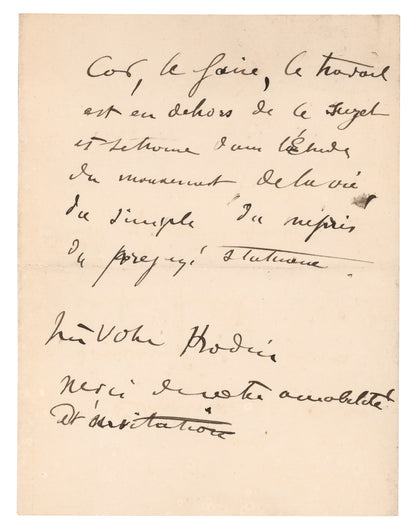 Car, le faire, le travail
est en dehors de le sujet
et se trouve dans l'Étude
du mouvement de la vie
du simple du mépris
du préjugé statuaire
votre ARodin
merci de votre amabilité
et invitation